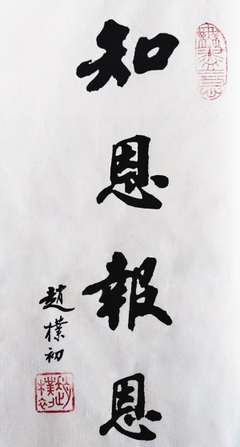 知恩報恩
趙樸初